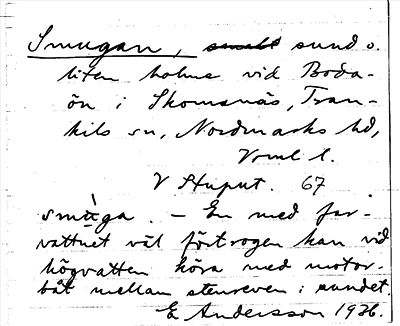 Smugan, samt sund o.
liten holme vid Boda-
ön i Skomsnäs, Tran-
kils sn, Nordmarks hd,
Vrml l.
V Huput. 67
smùga. – En med far-
vattnet väl förtrogen kan vid
högvatten köra med motor-
båt mellan stenreven i sundet.
E Andersson 1926.